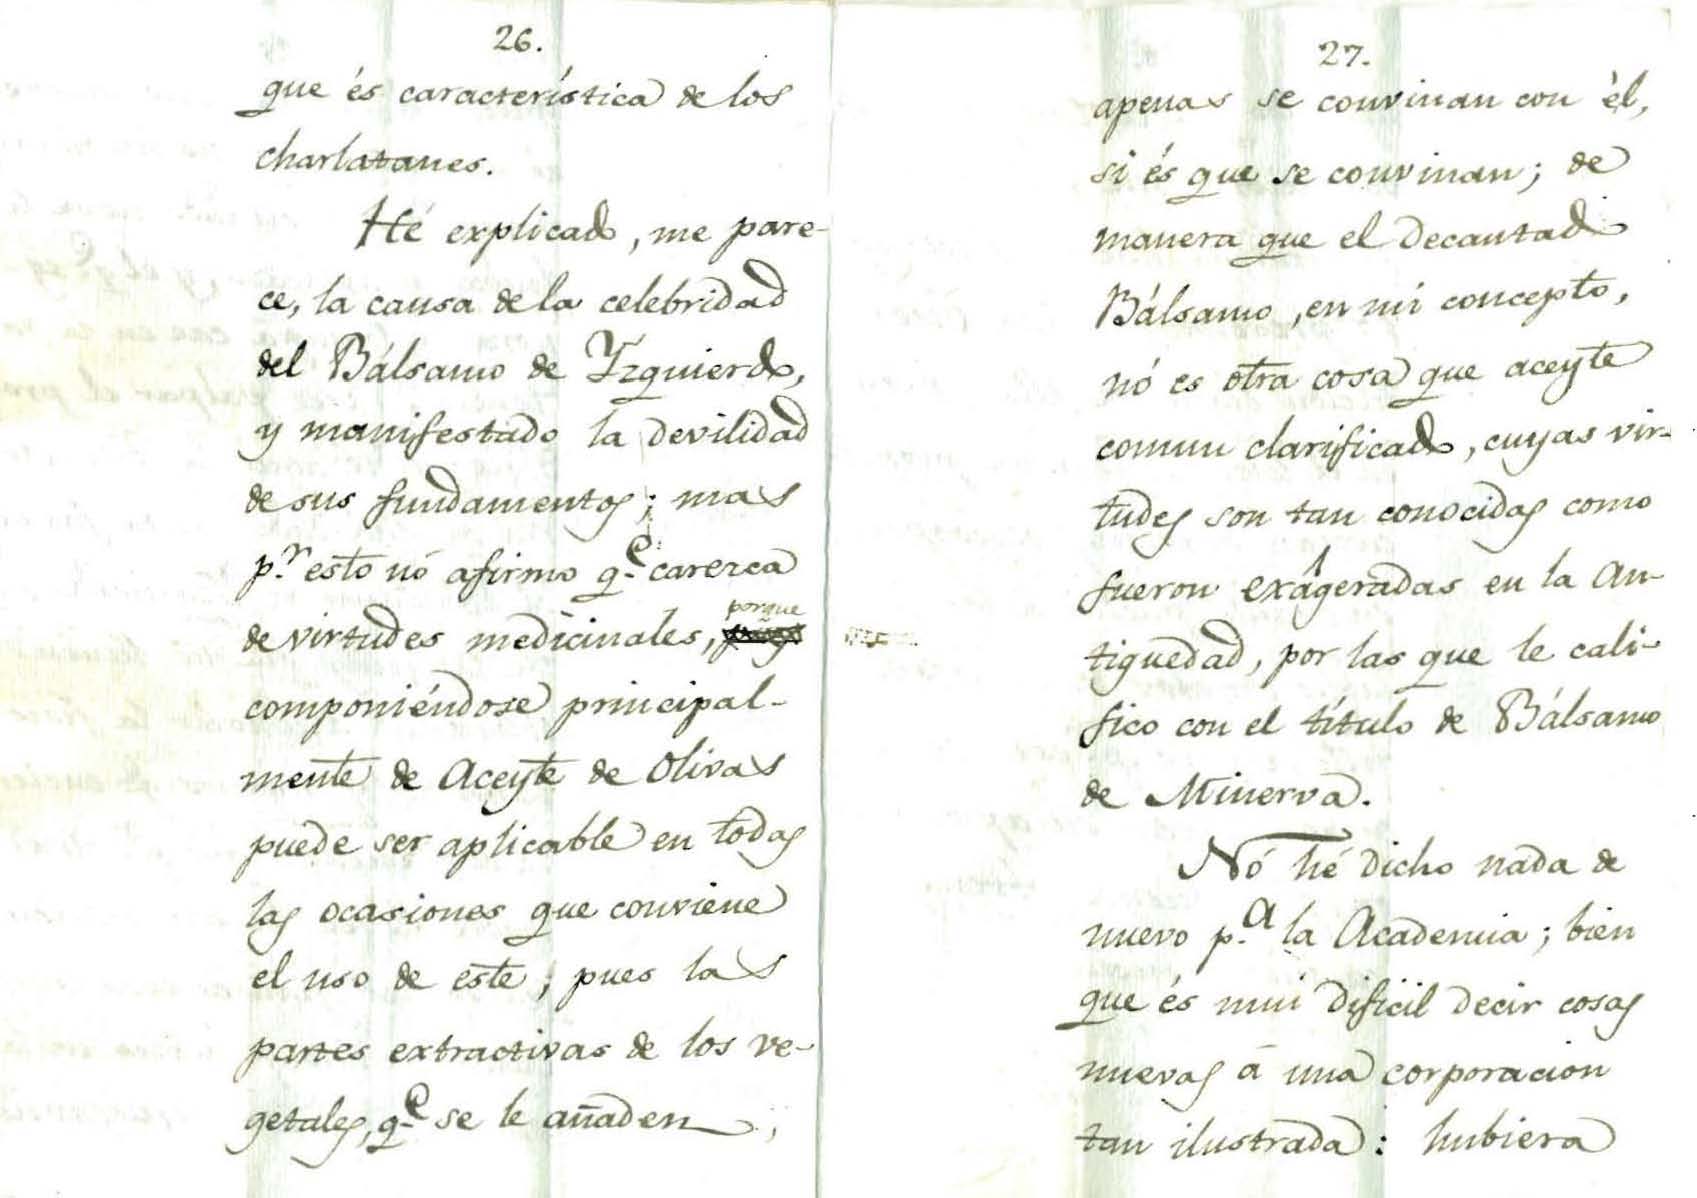 26.
que és característica de los
charlatanes.
Hé explicado, me pare-
ce, la causa de la celebridad
del Bálsamo de Yzquierdo,
y manifestado la devilidad
de sus fundamentos; mas
p.r esto nó afirmo q.e carezca
porque
de virtudes medicinales,
componiéndose principal-
mente de Aceyte de Olivas
puede ser aplicable en todas
las ocasiones que conviene
el uso de este; pues las
partes extractivas de los ve-
getales, q.e se le añaden,
27.
apenas se convinan con él,
si és que se convinan; de
manera que el decantado
Bálsamo, en mi concepto,
nó es otra cosa que aceyte
comun clarificado, cuyas vir-
tudes son tan conocidas como
fueron exâgeradas en la An-
tiguedad, por las que le cali-
fico con el título de Bálsamo
de Minerva.
Nó hé dicho nada de
nuevo p.a la Academia; bien
que és mui dificil decir cosas
nuevas á una corporacion
tan ilustrada: hubiera